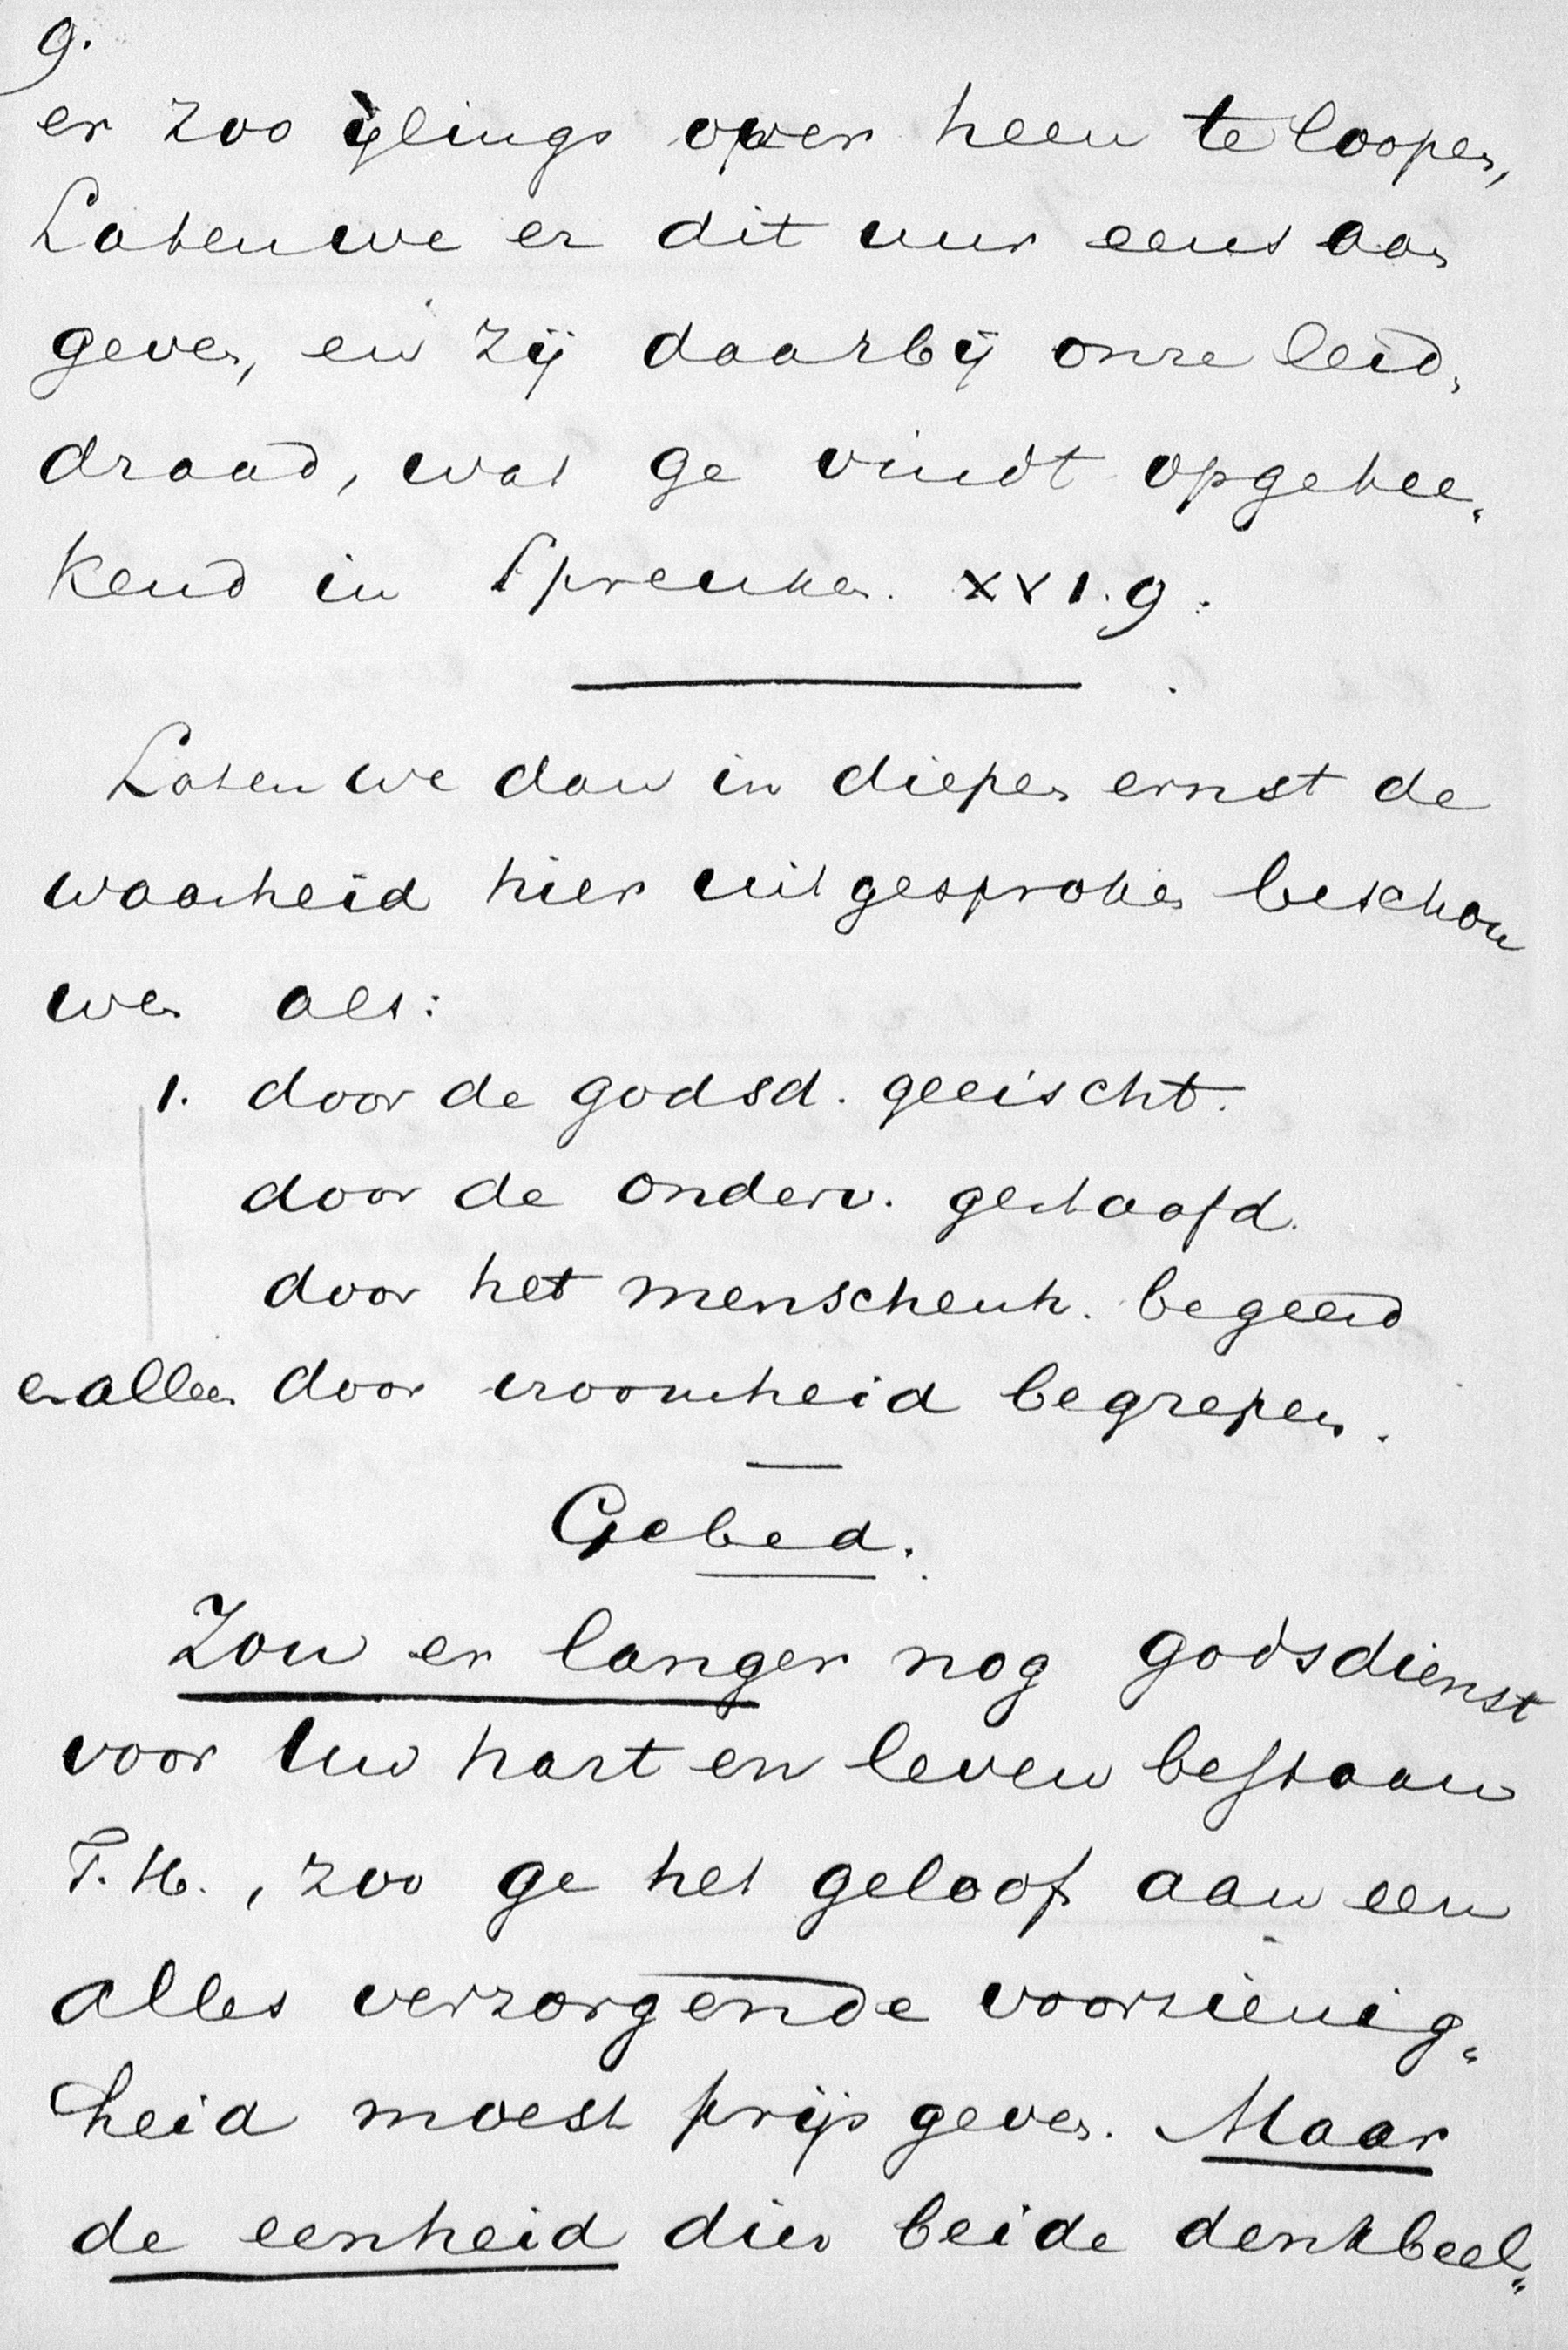 9.
er zoo ijlings over heen te loopen,
Laten we er dit uur eens aan
geven, en zij daarbij onze leid„
draad, wat ge vindt opgetee„
kend in Spreuken. XVI.9.
Laten we dan in diepen ernst de
waarheid hier uitgesproken beschou
wen als:
1. door de godsd. geeischt.
door de onderv. gestaafd.
door het menschenh. begeerd
en alleen door vroomheid begrepen.
Gebed.
Zou er langer nog godsdienst
voor Uw hart en leven bestaan
T.H., zoo ge het geloof aan een
alles verzorgende voorzienig„
heid moest prijs geven. Maar
de eenheid dier beide denkbeel„